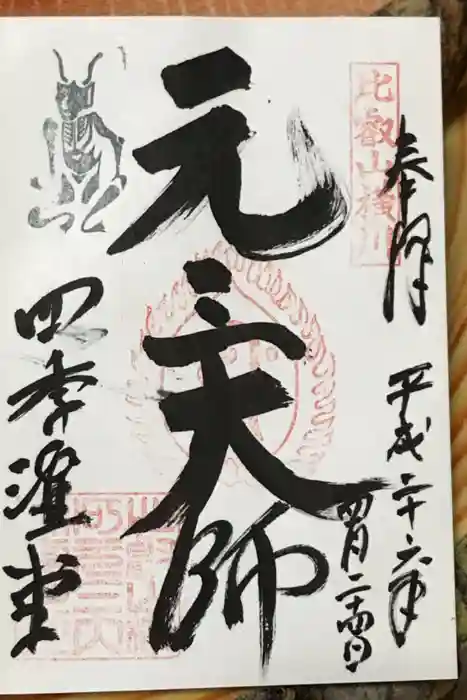 比叡山横川
奉拝
平成二十六年
四月二十四日
元三大師
四季講堂